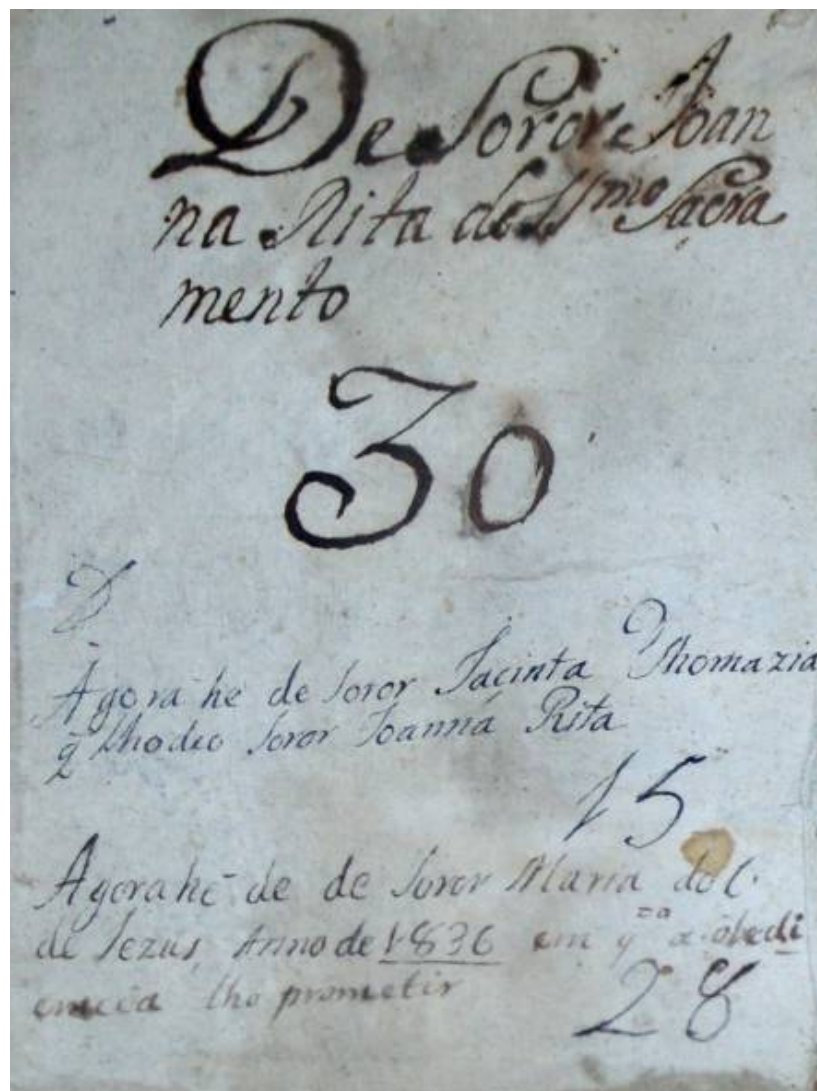 De Soror Joan
na Rita do SSmo Sacra
mento
30
D
Agora he de soror Jacinta Thomazia
q̃ lho deo soror Joanna Rita
15
Agora he de de soror Maria do C.
de Jezus Anno de 1836 em q a obedi
emcia lho prometir
28